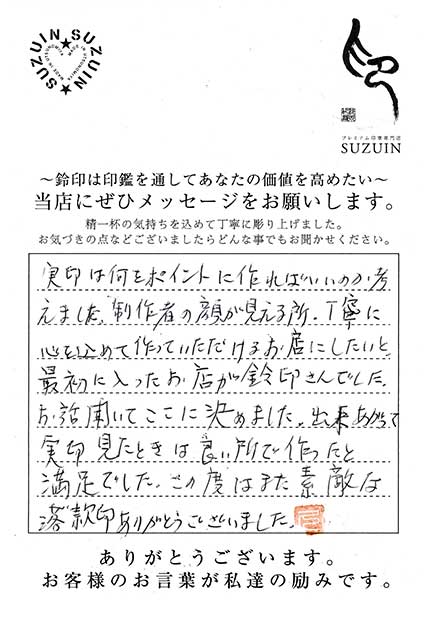 SUZUIN ★ SUZUIN ★
プレミアム印章専門店
SUZUIN
～鈴印は印鑑を通してあなたの価値を高めたい～
当店にぜひメッセージをお願いします。
精一杯の気持ちを込めて丁寧に彫り上げました。
お気づきの点などございましたらどんな事でもお聞かせください。
実印は何をポイントに作ればいいのか考
えました。制作者の顔が見える所。丁寧に
心を込めて作っていただけるお店にしたいと
最初に入ったお店が鈴印さんでした。
お話聞いてここに決めました。出来あがって
実印見たときは良い所で作ったと
満足でした。この度はまた素敵な
落款印ありがとうございました。
ありがとうございます。
お客様のお言葉が私達の励みです。